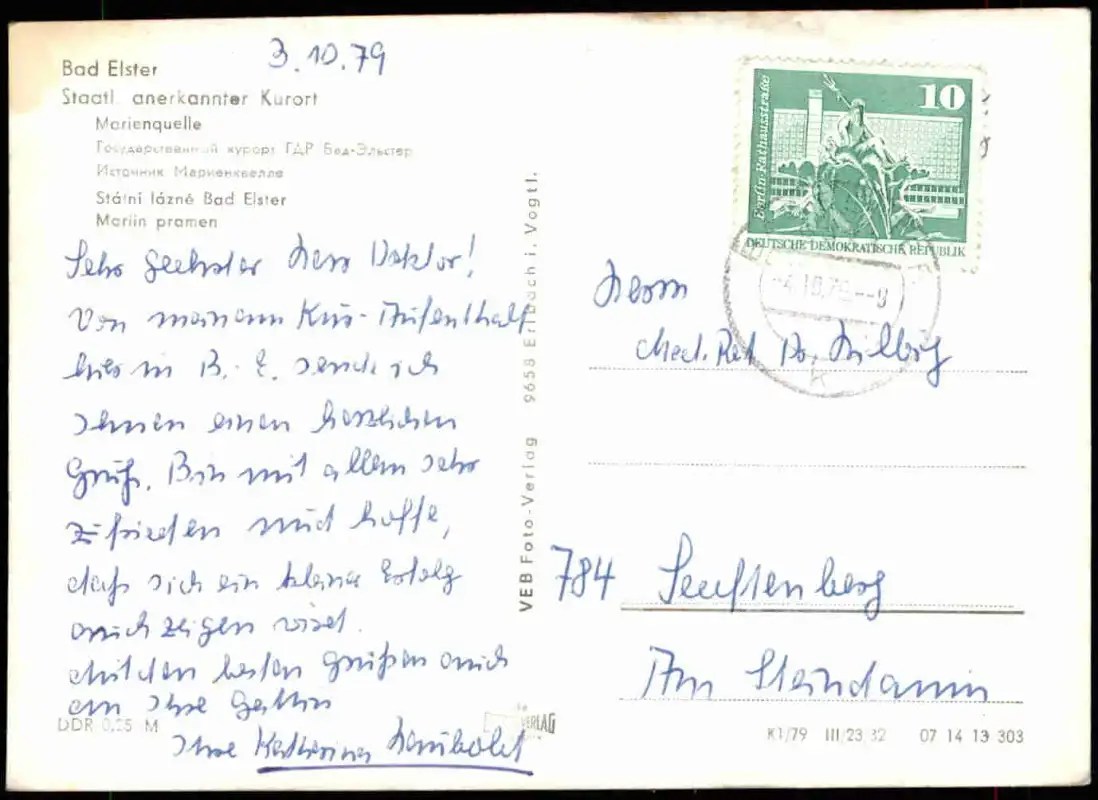 3.10.79
Bad Elster
Staatl. anerkannter Kurort
Marienquelle
Государственный курорт ГДР Бад-Эльстер
Источник Мариенквелле
Státní lázně Bad Elster
Mariin pramen
Sehr geehrter Herr Doktor!
Von meinem Kur-Aufenthalt
hier in B. E. sende ich
Ihnen einen herzlichen
Gruß. Bin mit allem sehr
zufrieden und hoffe,
daß sich ein kleiner Erfolg
auch zeigen wird.
Mit den besten Grüßen auch
an Ihre Gattin
Ihre Katharina
DDR 0,25 M
VEB Foto-Verlag 9658 Erlbach i. Vogtl.
VERLAG
Berlin-Rathausstraße
10
DEUTSCHE DEMOKRATISCHE REPUBLIK
-4.10.79--9
k
Herrn
Med. Rat Dr.
784 Senftenberg
Am Steindamm
K1/79 III/23,32 07 14 13 303